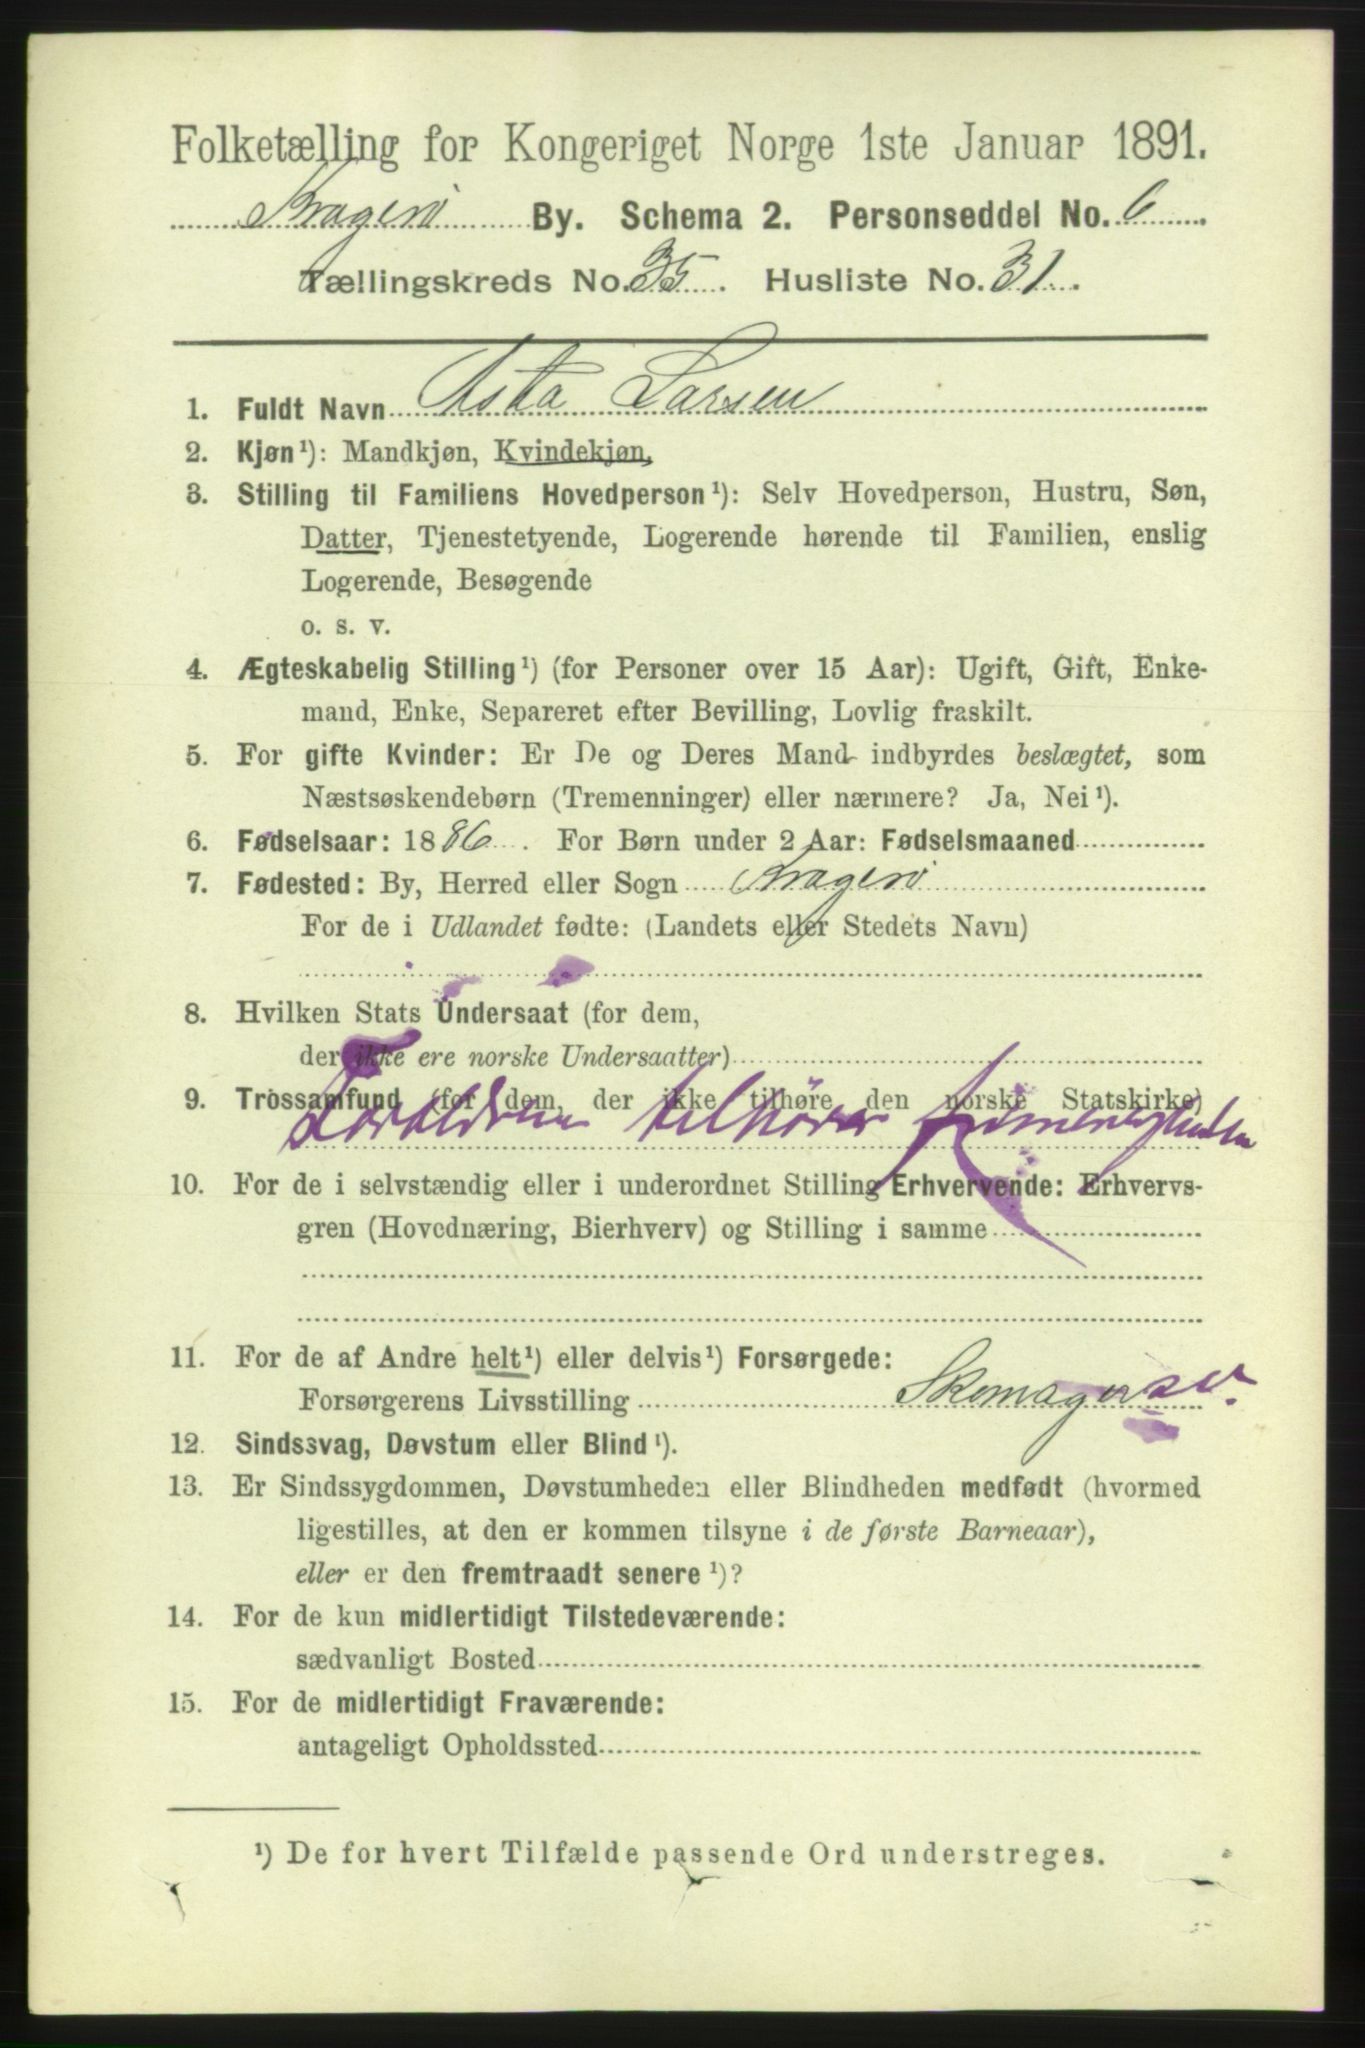 Folketælling for Kongeriget Norge 1ste Januar 1891.
Kragerø By. Schema 2. Personseddel No. 6
Tællingskreds No. 35. Husliste No. 31.
1. Fuldt Navn Asta Larsen
2. Kjøn¹): Mandkjøn, Kvindekjøn,
3. Stilling til Familiens Hovedperson¹): Selv Hovedperson, Hustru, Søn,
Datter, Tjenestetyende, Logerende hørende til Familien, enslig
Logerende, Besøgende
o. s. v.
4. Ægteskabelig Stilling¹) (for Personer over 15 Aar): Ugift, Gift, Enke-
mand, Enke, Separeret efter Bevilling, Lovlig fraskilt.
5. For gifte Kvinder: Er De og Deres Mand indbyrdes beslægtet, som
Næstsøskendebørn (Tremenninger) eller nærmere? Ja, Nei¹).
6. Fødselsaar: 1886. For Børn under 2 Aar: Fødselsmaaned
7. Fødested: By, Herred eller Sogn Kragerø
For de i Udlandet fødte: (Landets eller Stedets Navn)
8. Hvilken Stats Undersaat (for dem,
der ikke ere norske Undersaatter)
9. Trossamfund (for dem, der ikke tilhøre den norske Statskirke)
Forældrene tilhører frimenigheden
10. For de i selvstændig eller i underordnet Stilling Erhvervende: Erhvervs-
gren (Hovednæring, Bierhverv) og Stilling i samme
11. For de af Andre helt¹) eller delvis¹) Forsørgede:
Forsørgerens Livsstilling Skomager
12. Sindssvag, Døvstum eller Blind¹).
13. Er Sindssygdommen, Døvstumheden eller Blindheden medfødt (hvormed
ligestilles, at den er kommen tilsyne i de første Barneaar),
eller er den fremtraadt senere¹)?
14. For de kun midlertidigt Tilstedeværende:
sædvanligt Bosted
15. For de midlertidigt Fraværende:
antageligt Opholdssted
¹) De for hvert Tilfælde passende Ord understreges.